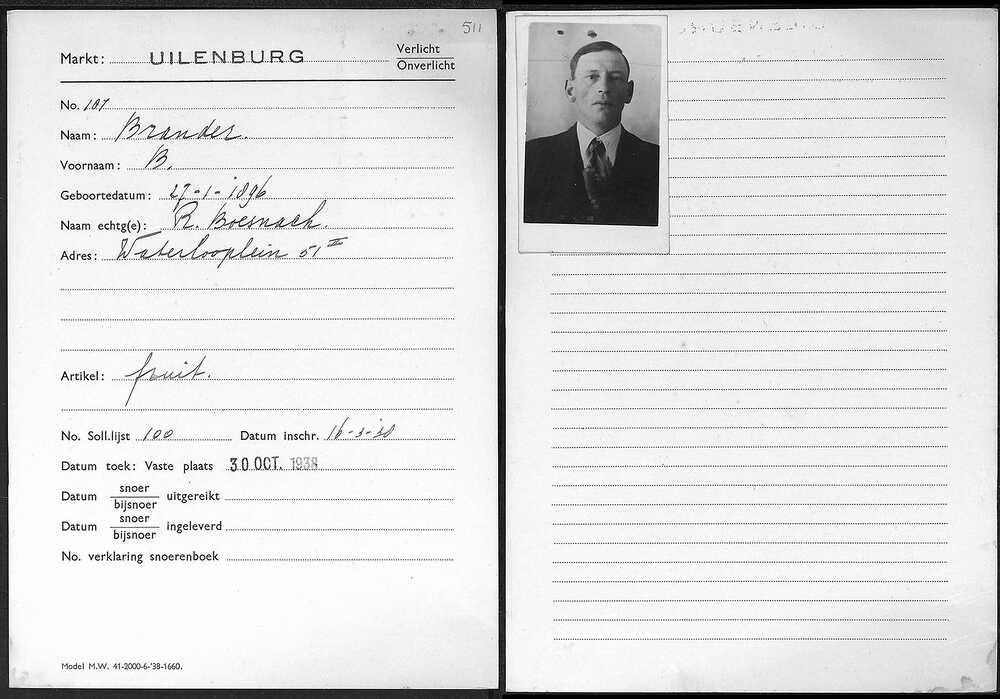 511
Markt: UILENBURG Verlicht
Onverlicht
No. 187
Naam: Brander.
Voornaam: B.
Geboortedatum: 27-1-1896
Naam echtg(e): R. Boesnach.
Adres: Waterlooplein 51 II
Artikel: fruit.
No. Soll.lijst 100 Datum inschr. 16-3-'38
Datum toek: Vaste plaats 30 OCT. 1938
Datum snoer uitgereikt
bijsnoer
Datum snoer ingeleverd
bijsnoer
No. verklaring snoerenboek
Model M.W. 41-2000-6-'38-1660.